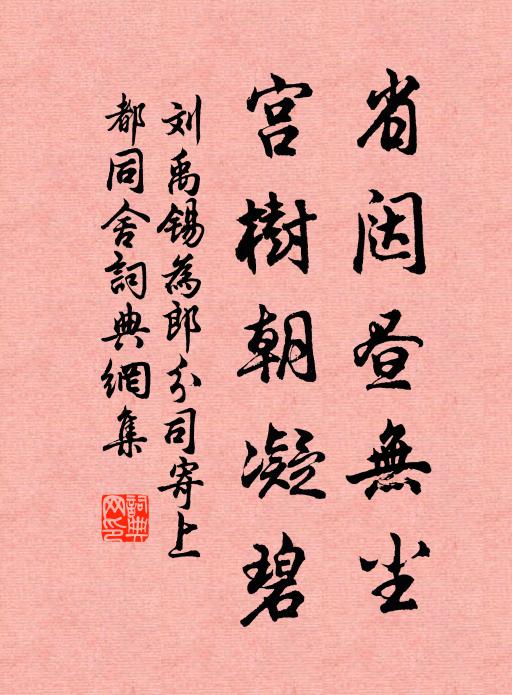 省闼昼無尘
宫樹朝凝碧
刘禹锡為郎分司寄上
都同舍詞典網集
詞典网印